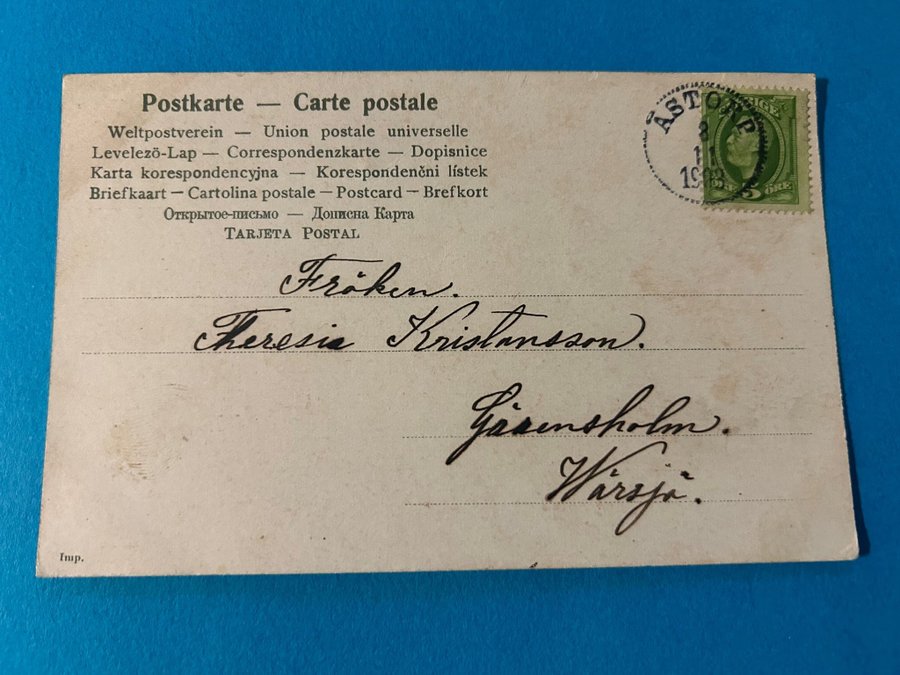 Postkarte — Carte postale
Weltpostverein — Union postale universelle
Levelező-Lap — Correspondenzkarte — Dopisnice
Karta korespondencyjna — Korespondenční lístek
Briefkaart — Cartolina postale — Postcard — Brefkort
Открытое-письмо — Дописна Карта
TARJETA POSTAL
ÅSTORP
11
5 ÖRE
Fröken.
Theresia Kristansson.
Wärsjö.
Imp.